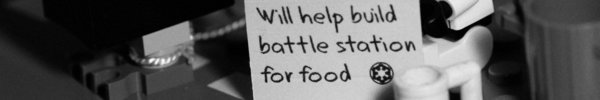 Will help build
battle station
for food